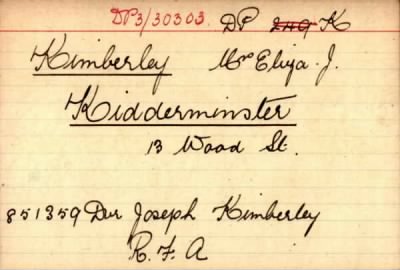 DP3/30303. DP 249 K
Kimberley Mrs Eliza. J.
Kidderminster
13 Wood St.
851359 Dvr Joseph Kimberley
R. F. A